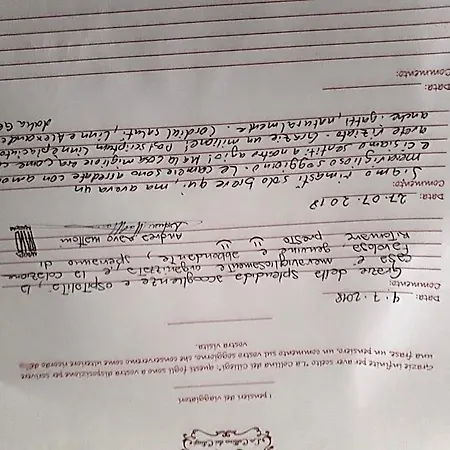 La Collina dei Ciliegi
I pensieri dei viaggiatori
Grazie infinite per aver scelto "La collina dei ciliegi", questi fogli sono a vostra disposizione per scrivere
una frase, un pensiero, un commento sul vostro soggiorno, che conserveremo come ulteriore ricordo della
vostra visita.
Data: 4.7.2018
Commento:
Grazie della splendida accoglienza e ospitalità, la
casa è meravigliosamente organizzata e la colazione
favolosa, genuina e abbondante, speriamo di
ritornare presto
Andrea
Data: 27.07.2018
Commento:
Siamo rimasti solo breve qui, ma aveva un
meraviglioso soggiorno. Le camere sono arredate con amore
e ci siamo sentiti a nostro agio! Ma la cosa migliore era, come ci
avete viziato. Grazie un milione! Postscriptum: Ci sono piaciuto
anche i gatti, naturalmente. Cordiali saluti,
Data:
Commento: